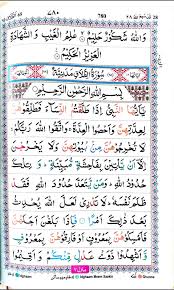 وَاللّٰهُ شَكُوْرٌ حَلِيْمٌ عٰلِمُ الْغَيْبِ وَالشَّهَادَةِ
الْعَزِيْزُ الْحَكِيْمُ
سُوْرَةُ الطَّلَاقِ مَدَنِيَّةٌ
بِسْمِ اللّٰهِ الرَّحْمٰنِ الرَّحِيْمِ
يٰٓاَيُّهَا النَّبِيُّ اِذَا طَلَّقْتُمُ النِّسَآءَ فَطَلِّقُوْ
هُنَّ لِعِدَّتِهِنَّ وَاَحْصُوا الْعِدَّةَ وَاتَّقُوا اللّٰهَ رَبَّكُمْ
لَا تُخْرِجُوْهُنَّ مِنْۢ بُيُوْتِهِنَّ وَلَا يَخْرُجْنَ
اِلَّآ اَنْ يَّاْتِيْنَ بِفَاحِشَةٍ مُّبَيِّنَةٍ وَتِلْكَ
حُدُوْدُ اللّٰهِ وَمَنْ يَّتَعَدَّ حُدُوْدَ اللّٰهِ فَقَدْ
ظَلَمَ نَفْسَهٗ لَا تَدْرِيْ لَعَلَّ اللّٰهَ يُحْدِثُ
بَعْدَ ذٰلِكَ اَمْرًا فَاِذَا بَلَغْنَ اَجَلَهُنَّ
فَاَمْسِكُوْهُنَّ بِمَعْرُوْفٍ اَوْ فَارِقُوْهُنَّ بِمَعْرُوْفٍ
وَّاَشْهِدُوْا ذَوَيْ عَدْلٍ مِّنْكُمْ وَاَقِيْمُوا
منزل ٧